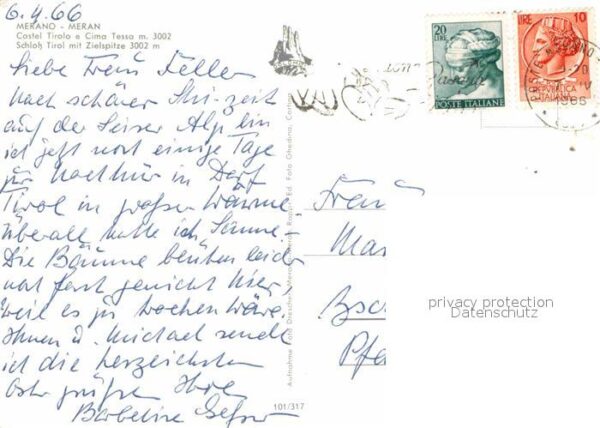 6.4.66
MERANO - MERAN
Castel Tirolo e Cima Tessa m. 3002
Schloß Tirol mit Zielspitze 3002 m
Liebe Frau Keller
nach schöner Ski-zeit
auf der Seiser Alp bin
ich jetzt noch einige Tage
zur Nachkur in Dorf
Tirol in großer Wärme
überall hatte ich Sonne.
Die Bäume blühen leider
noch fast garnicht hier
weil es zu trocken wäre
Ihnen u. Michael sende
ich die herzlichsten
Ostergrüße Ihre
101/317
20
LIRE
POSTE ITALIANE
LIRE 10
REPVBBLICA
ITALIANA
1966
Frau
Pfe
privacy protection
Datenschutz